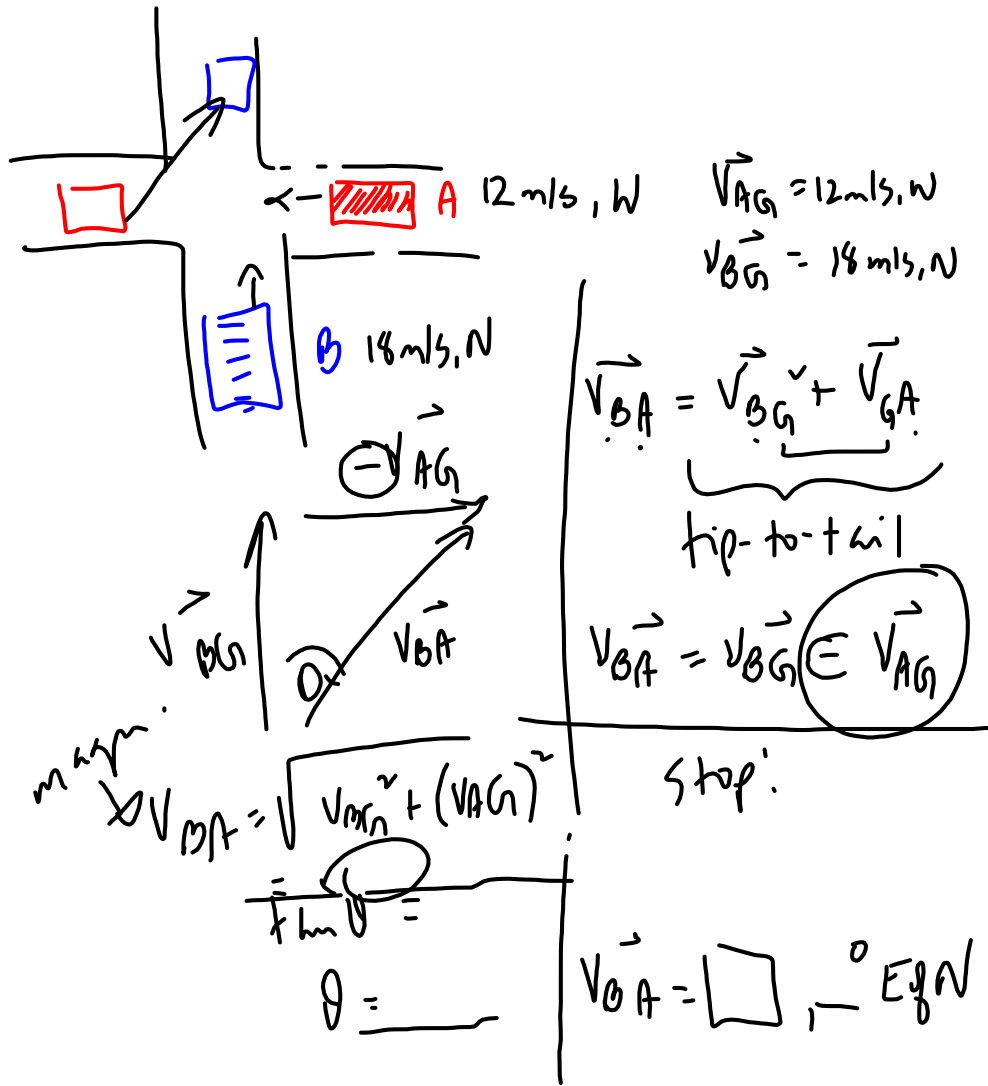 A 12 m/s, W
B 18 m/s, N
V⃗AG = 12 m/s, W
V⃗BG = 18 m/s, N
V⃗BA = V⃗BG + V⃗GA
tip-to-tail
V⃗BA = V⃗BG - V⃗AG
stop!
-V⃗AG
V⃗BG
V⃗BA
θ
magn.
VBA = √VBG² + (VAG)²
=
tan θ =
θ = ___
V⃗BA = □, __° E of N